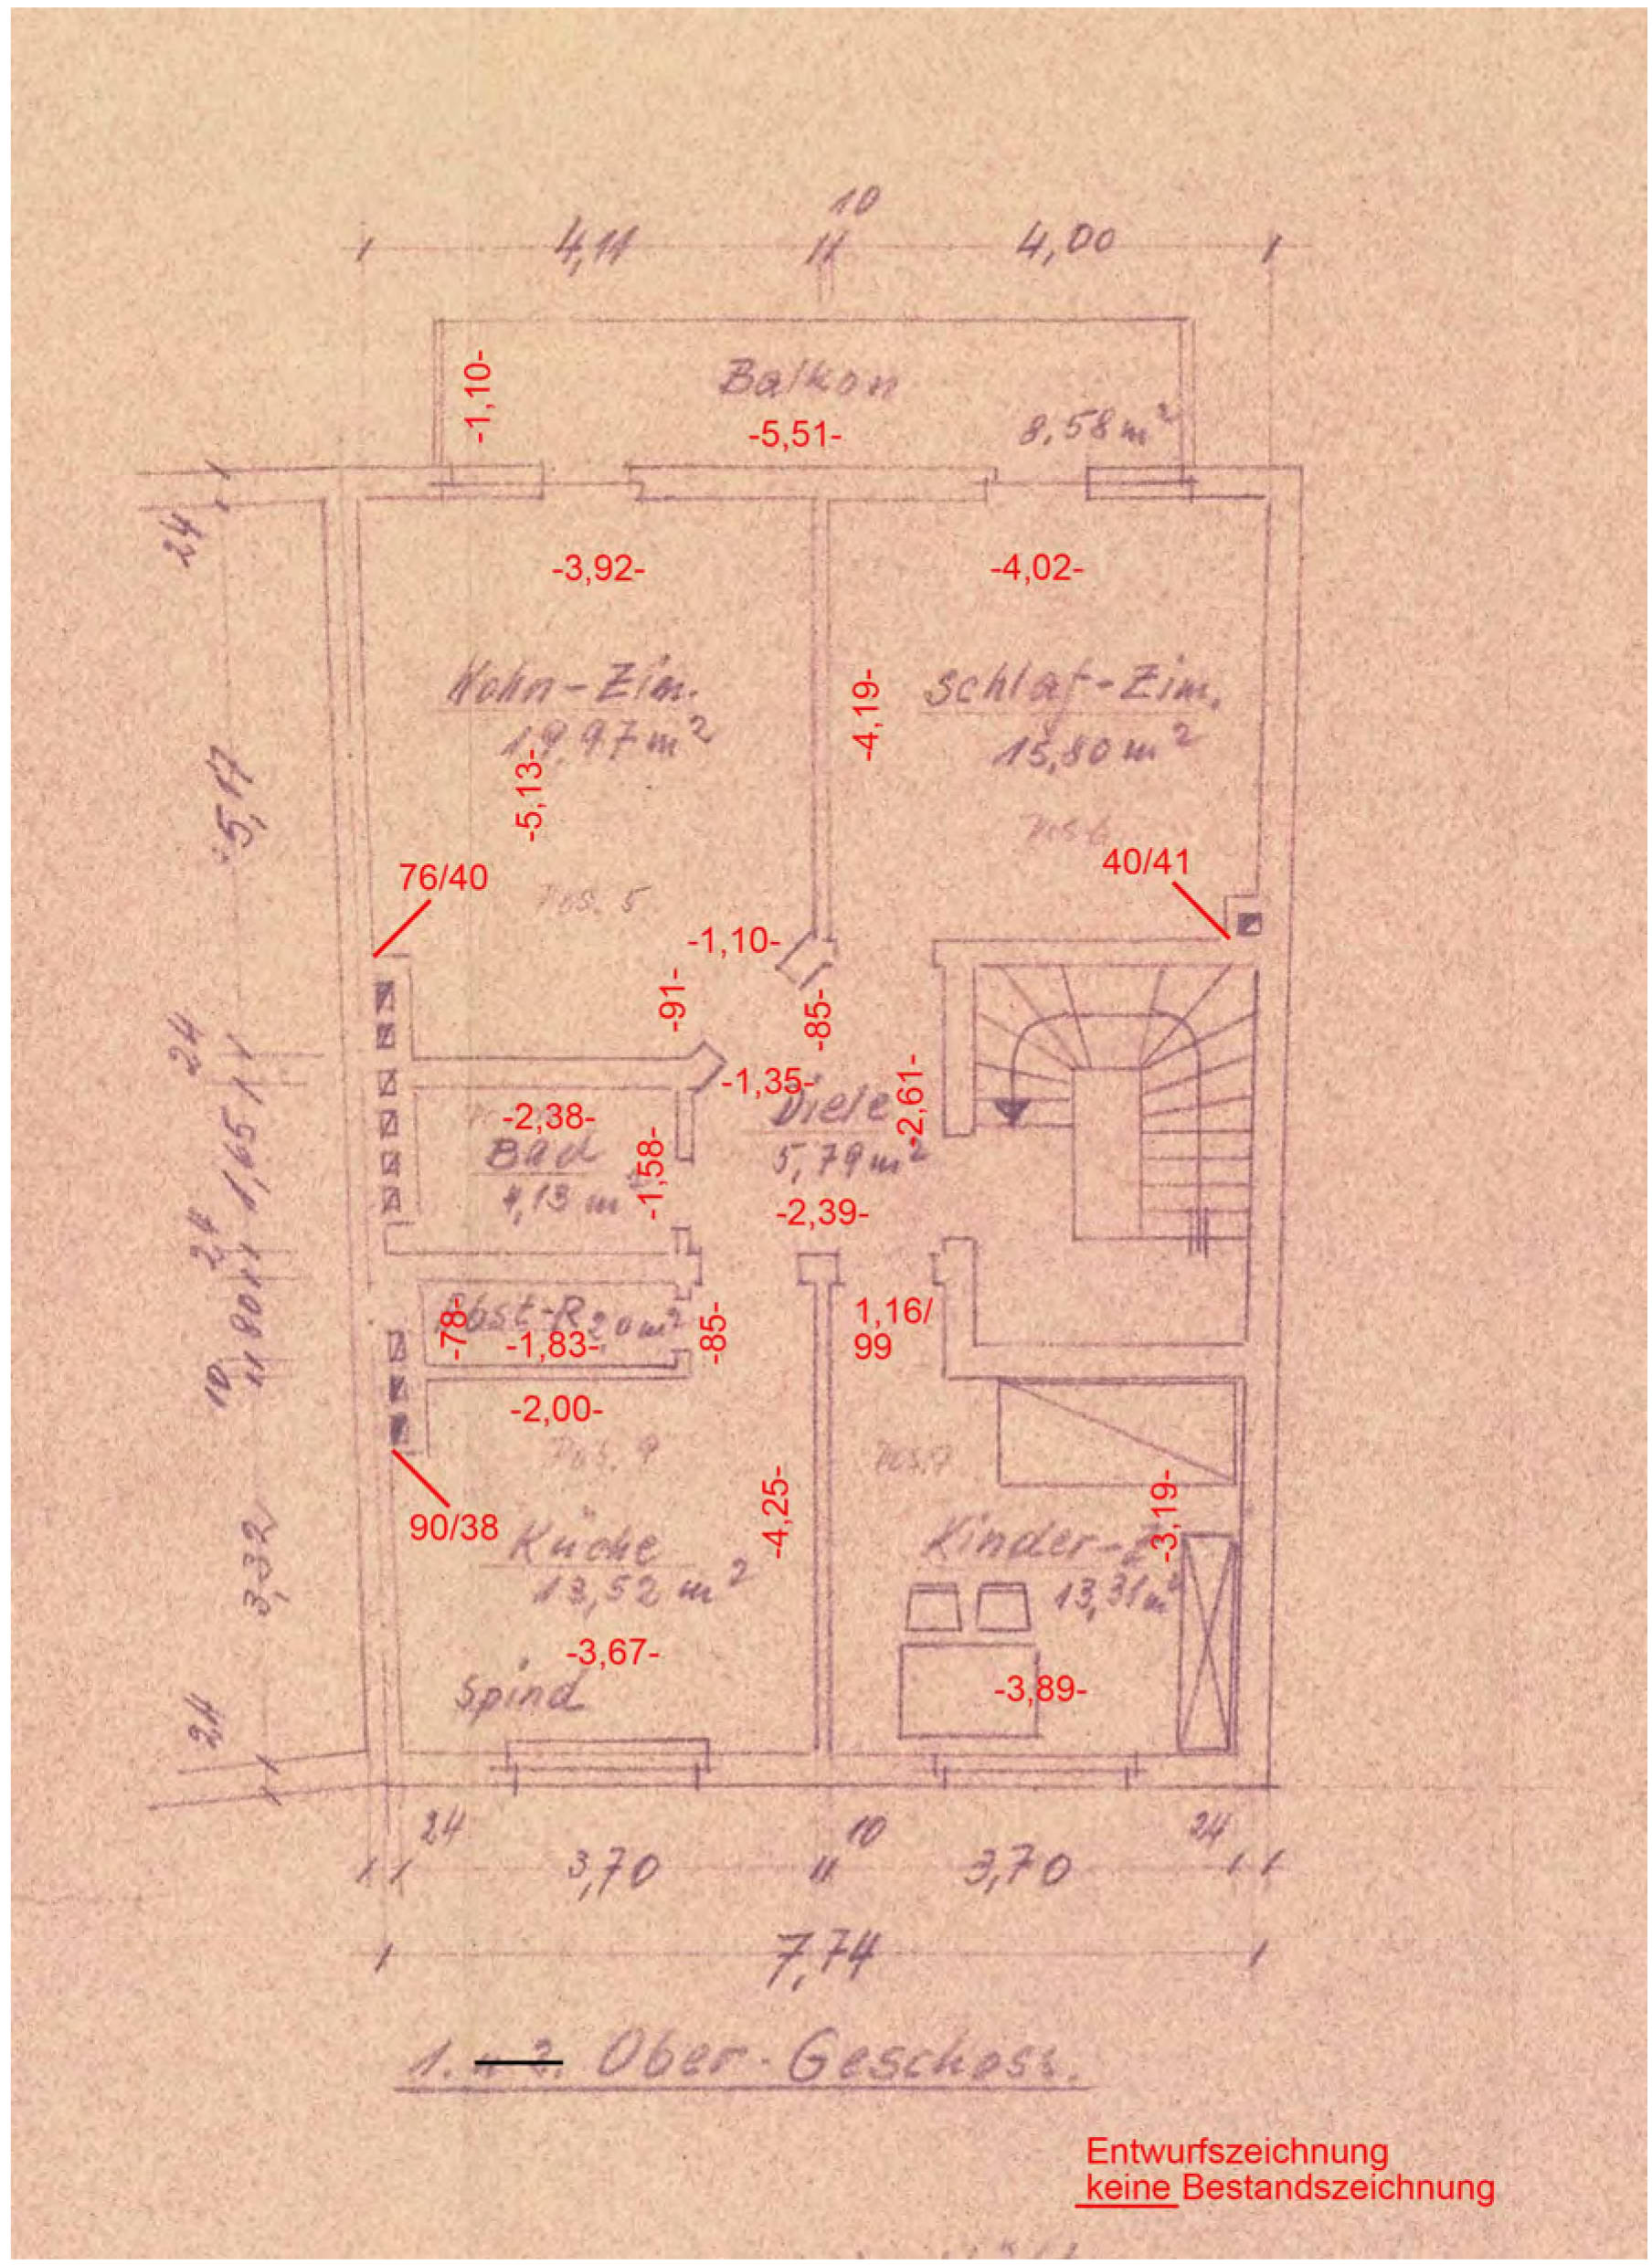 10
4,11
4,00
-1,10-
Balkon
-5,51-
8,58 m²
24
-3,92-
-4,02-
Wohn-Zim.
19,97 m²
-5,13-
-4,19-
Schlaf-Zim.
15,80 m²
5,17
76/40
Pos. 5
40/41
-1,10-
-91-
-85-
24
-1,35-
Diele
5,79 m²
-2,61-
-2,38-
Bad
4,13 m²
-1,58-
1,65
-2,39-
24
Abst-R
-78-
-1,83-
-85-
1,16/
99
80
10
-2,00-
Pos. 9
Pos. 7
90/38
-4,25-
-3,19-
3,32
Küche
13,52 m²
Kinder-Z
13,31 m²
-3,67-
Spind
-3,89-
24
24
10
24
3,70
3,70
7,74
1. u 2. Ober-Geschoss.
Entwurfszeichnung
keine Bestandszeichnung